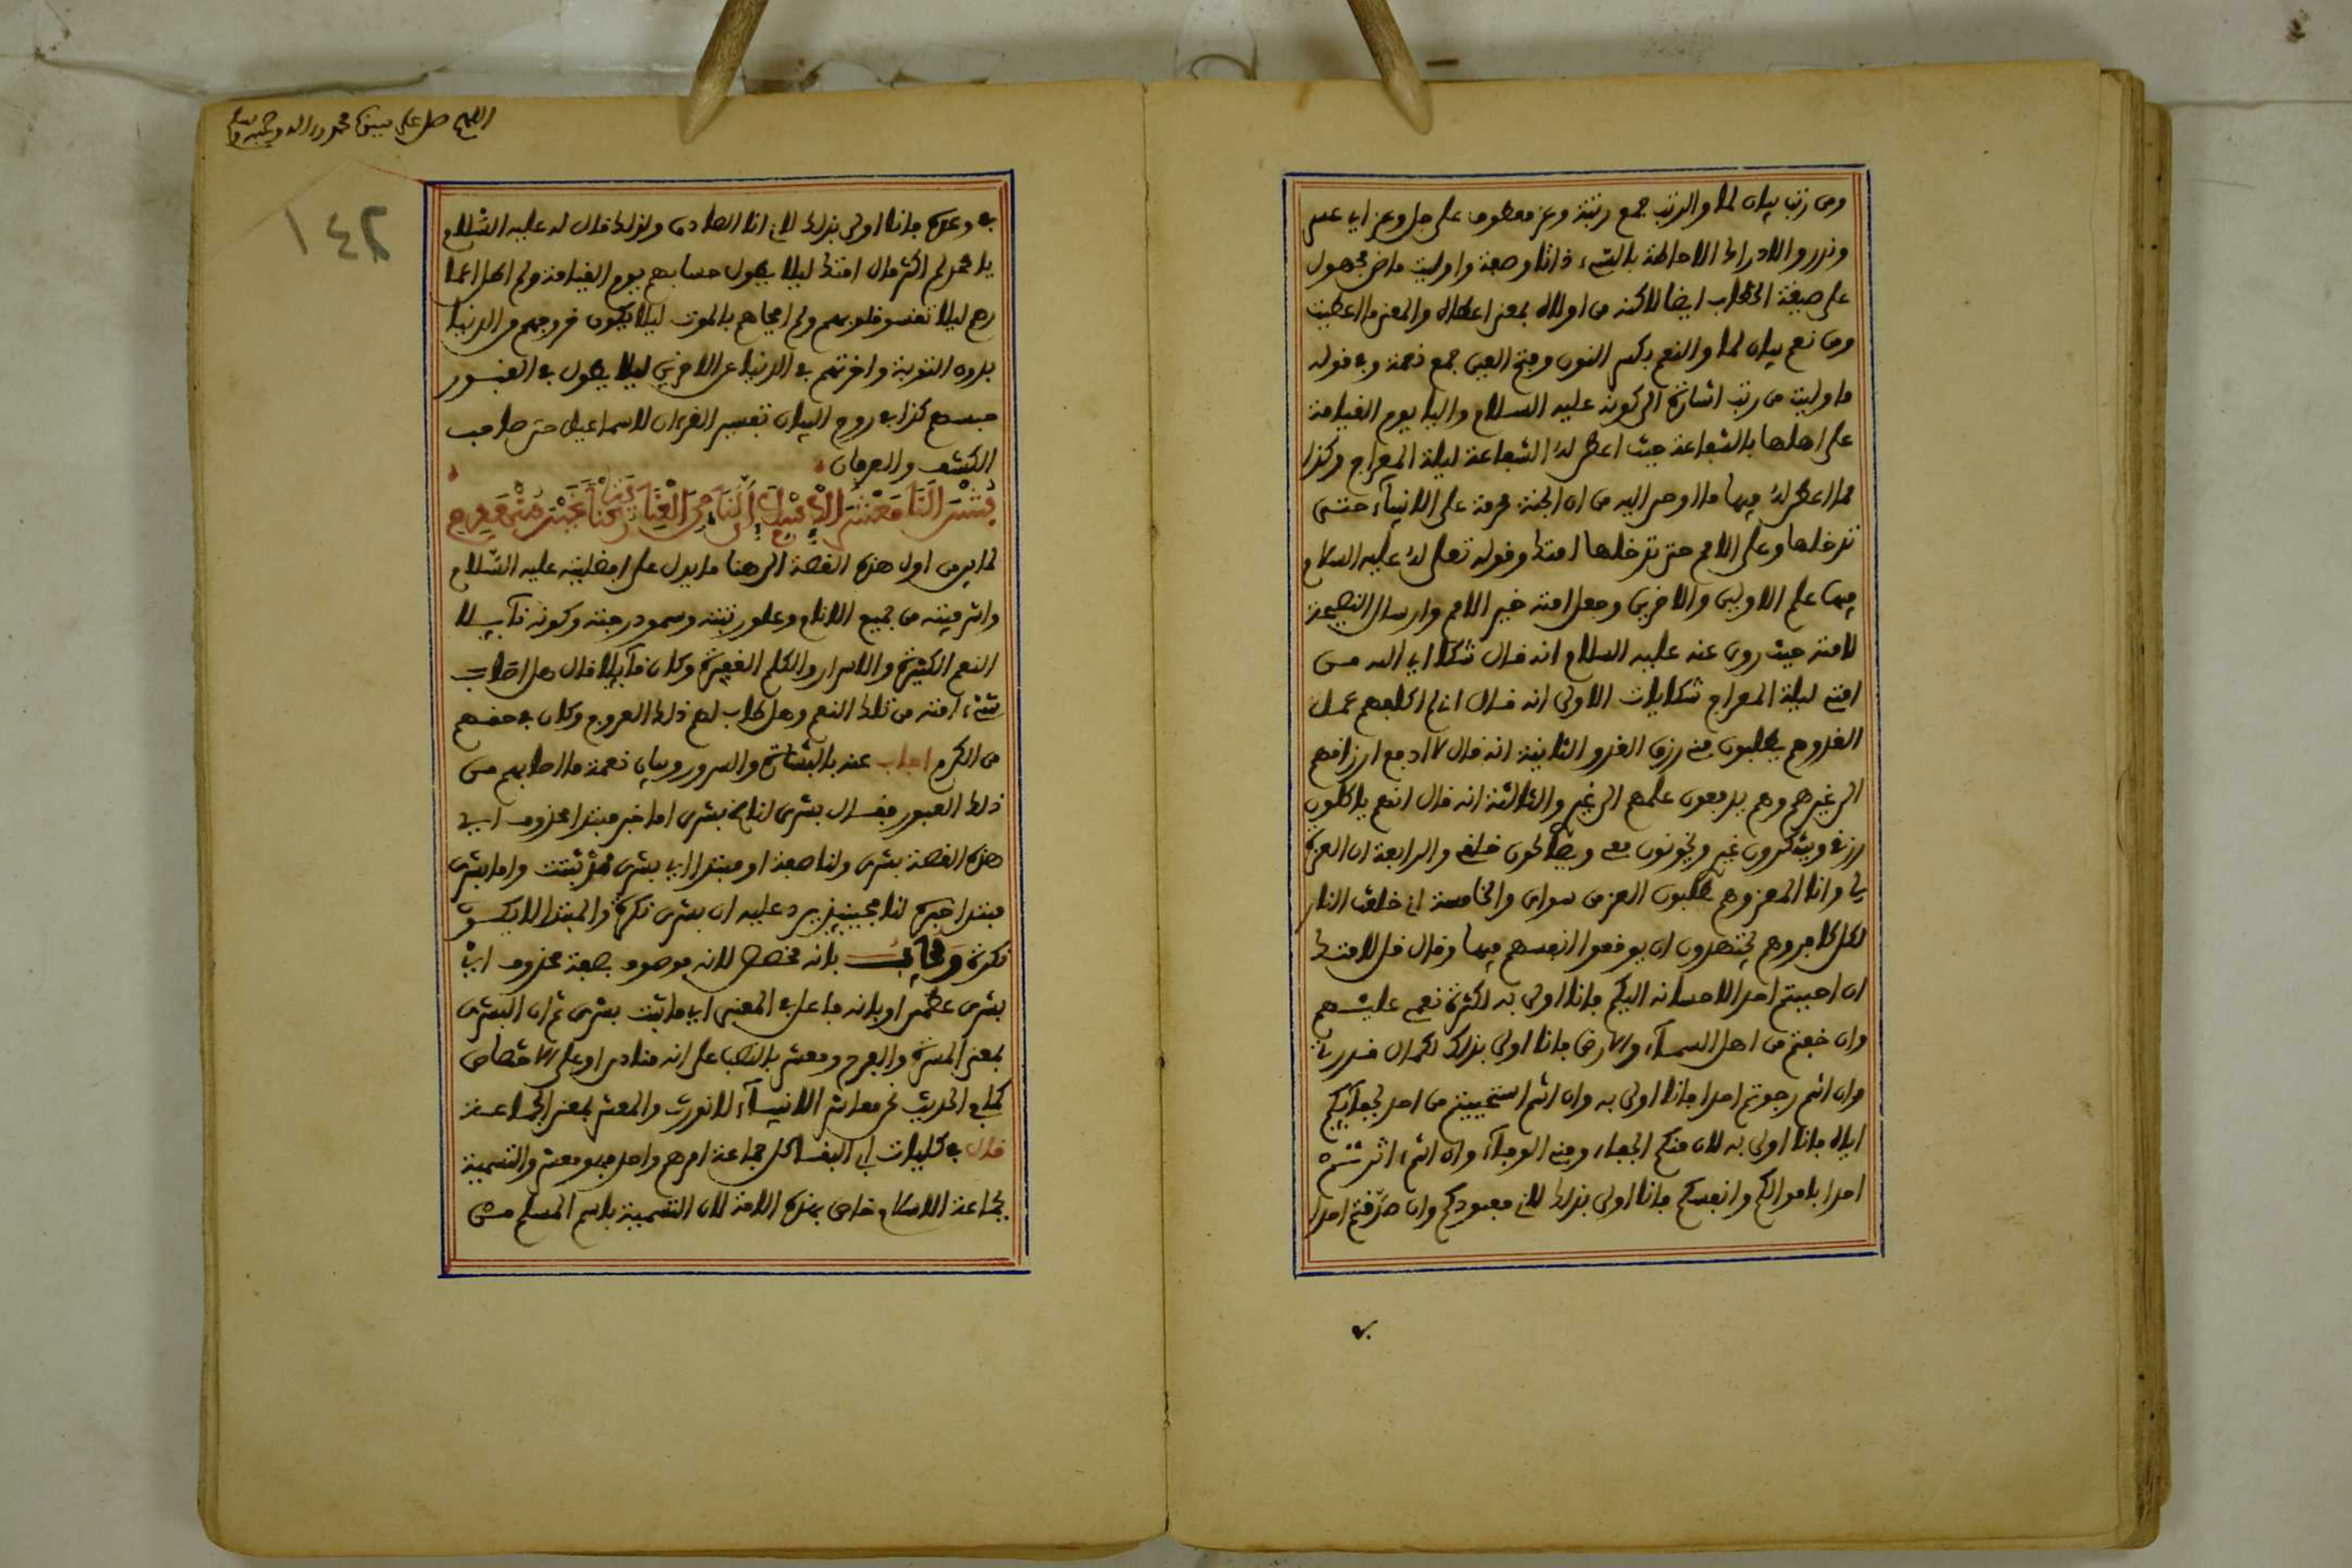 ومن رتب بيان لما والرتب جمع رتبة وعز معطوف على جل وعز اي عسر
وندر والادراك الاحاطة بالشيء ذاتا وصفة واوليت ماض مجهول
على صيغة الخطاب ايضا لاكنه من اولاه بمعنى اعطاه والمعنى ما اعطيت
ومن نعم بيان لما والنعم بكسر النون وفتح العين جمع نعمة وفي قوله
ما وليت من رتب اشارة الى كونه عليه السلام واليا يوم القيامة
على اهلها بالشفاعة حيث اعطى له الشفاعة ليلة المعراج وكذا
مما اعطى له فيها ما اوحى اليه من ان الجنة محرمة على الانبياء حتى
تدخلها وعلى الامم حتى تدخلها امتك وقوله تعلى له عليه السلام
فيها علم الاولين والاخرين وجعل امته خير الامم وارسال النصيحة
لامته حيث روى عنه عليه السلام انه قال شكا الي الله من
امتي ليلة المعراج شكايات الاولى انه قال اني لم اكلفهم عمل
الغد وهم يطلبون مني رزق الغد والثانية انه قال لا ادفع ارزاقهم
الى غيرهم وهم يدفعون علمهم الى غيري والثالثة انه قال انهم ياكلون
رزقي ويشكرون غيري ويخونون معي ويصالحون خلقي والرابعة ان العزة
لي وانا المعز وهم يطلبون العز من سواي والخامسة اني خلقت النار
لكل كافر وهم يجتهدون ان يوقعوا انفسهم فيها وقال قل لامتك
ان احببتم احدا لاحسانه اليكم فانا اولى به لكثرة نعمي عليهم
وان خفتم من اهل السماء والارض فانا اولى بذلك لكمال قدرتي
وان انتم رجوتم احدا فانا اولى به وان انتم استحييتم من احد لجفائكم
اياه فانا اولى به لان منكم الجفاء ومني الوفاء وان انتم اثرتم
احدا باموالكم وانفسكم فانا اولى بذلك لاني معبودكم وان صدقتم احدا
في
اللهم صل على سيدنا محمد واله وصحبه وسلم
١٤٢
في وعده فانا اولى بذلك لاني انا الصادق وكذلك قال له عليه السلام
يا محمد لم اكثر مال امتك ليلا يطول حسابهم يوم القيامة ولم اطل اعما
رهم ليلا تقسو قلوبهم ولم افجاهم بالموت ليلا يكون خروجهم من الدنيا
بدون التوبة واخرتهم في الدنيا عن الاخرين ليلا يطول في القبور
حبسهم كذا في روح البيان تفسير القرءان لاسماعيل حقي صاحب
الكشف والعرفان
بشرى لنا معشر الاسلام ان لنا من العناية ركنا غير منهدم
لما بين من اول هذه القصة الى هنا ما يدل على افضليته عليه السلام
واشرفيته من جميع الانام وعلو رتبته وسمو درجته وكونه نائلا
النعم الكثيرة والاسرار والكلم الغفيرة وكان قائلا قال هل اصاب
شيء امته من تلك النعم وهل طاب لهم ذلك العروج وكان في حقهم
من الكرم اجاب عنه بالبشارة والسرور وبيان نعمة ما اصابهم من
ذلك العبور فقال بشرى لنا الخ بشرى اما خبر مبتدا محذوف اي
هذه القصة بشرى ولنا صفة او مبتدا اي بشرى ثبتت واما بشرى
مبتدا خبره لنا فحينئذ يرد عليه ان بشرى نكرة والمبتدا لا يكون
نكرة وقلت بانه مخصص لانه موصوف بصفة محذوف اي
بشرى عظمى او بانه فاعل في المعنى اي ما ثبت بشرى ثم ان البشرى
بمعنى المسرة والفرح ومعشر بالنصب على انه منادى او على الاختصاص
كما في الحديث نحن معاشر الانبياء لا نورث والمعشر بمعنى الجماعة
قال في كليات ابي البقا كل جماعة امرهم واحد فهو معشر والتسمية
بجماعة الاسلام خاص بهذه الامة لان التسمية باسم المسلم من